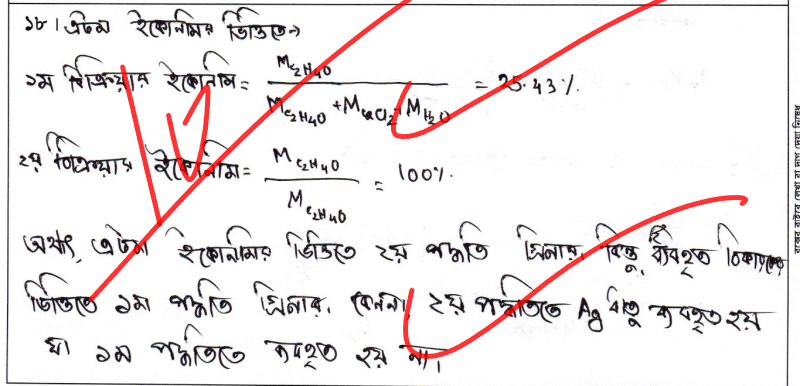 ১৮। এটম ইকোনমির ভিত্তিতে→
১ম বিক্রিয়ার ইকোনমি = M_{C₂H₄O} / (M_{C₂H₄O} + M_{CaCl₂} + M_{H₂O}) = 25.43%.
২য় বিক্রিয়ার ইকোনমি = M_{C₂H₄O} / M_{C₂H₄O} = 100%.
অর্থাৎ, এটম ইকোনমির ভিত্তিতে ২য় পদ্ধতি গ্রিনার, কিন্তু, ব্যবহৃত
ভিত্তিতে ১ম পদ্ধতি গ্রিনার, কেননা, ২য় পদ্ধতিতে Ag ধাতু ব্যবহৃত হয়
যা ১ম পদ্ধতিতে ব্যবহৃত হয় না।